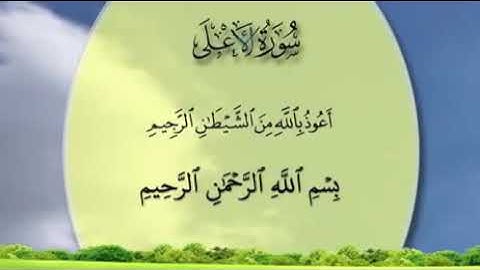 سُورَةُ الأَعْلَى
أَعُوذُ بِاللَّهِ مِنَ الشَّيْطَانِ الرَّجِيمِ
بِسْمِ اللَّهِ الرَّحْمَٰنِ الرَّحِيمِ